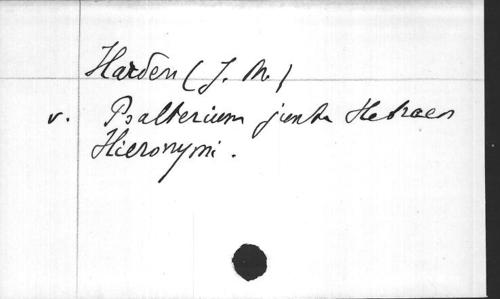 Harden (J. M.)
v. Psalterium juxta Hebraeos
Hieronymi.